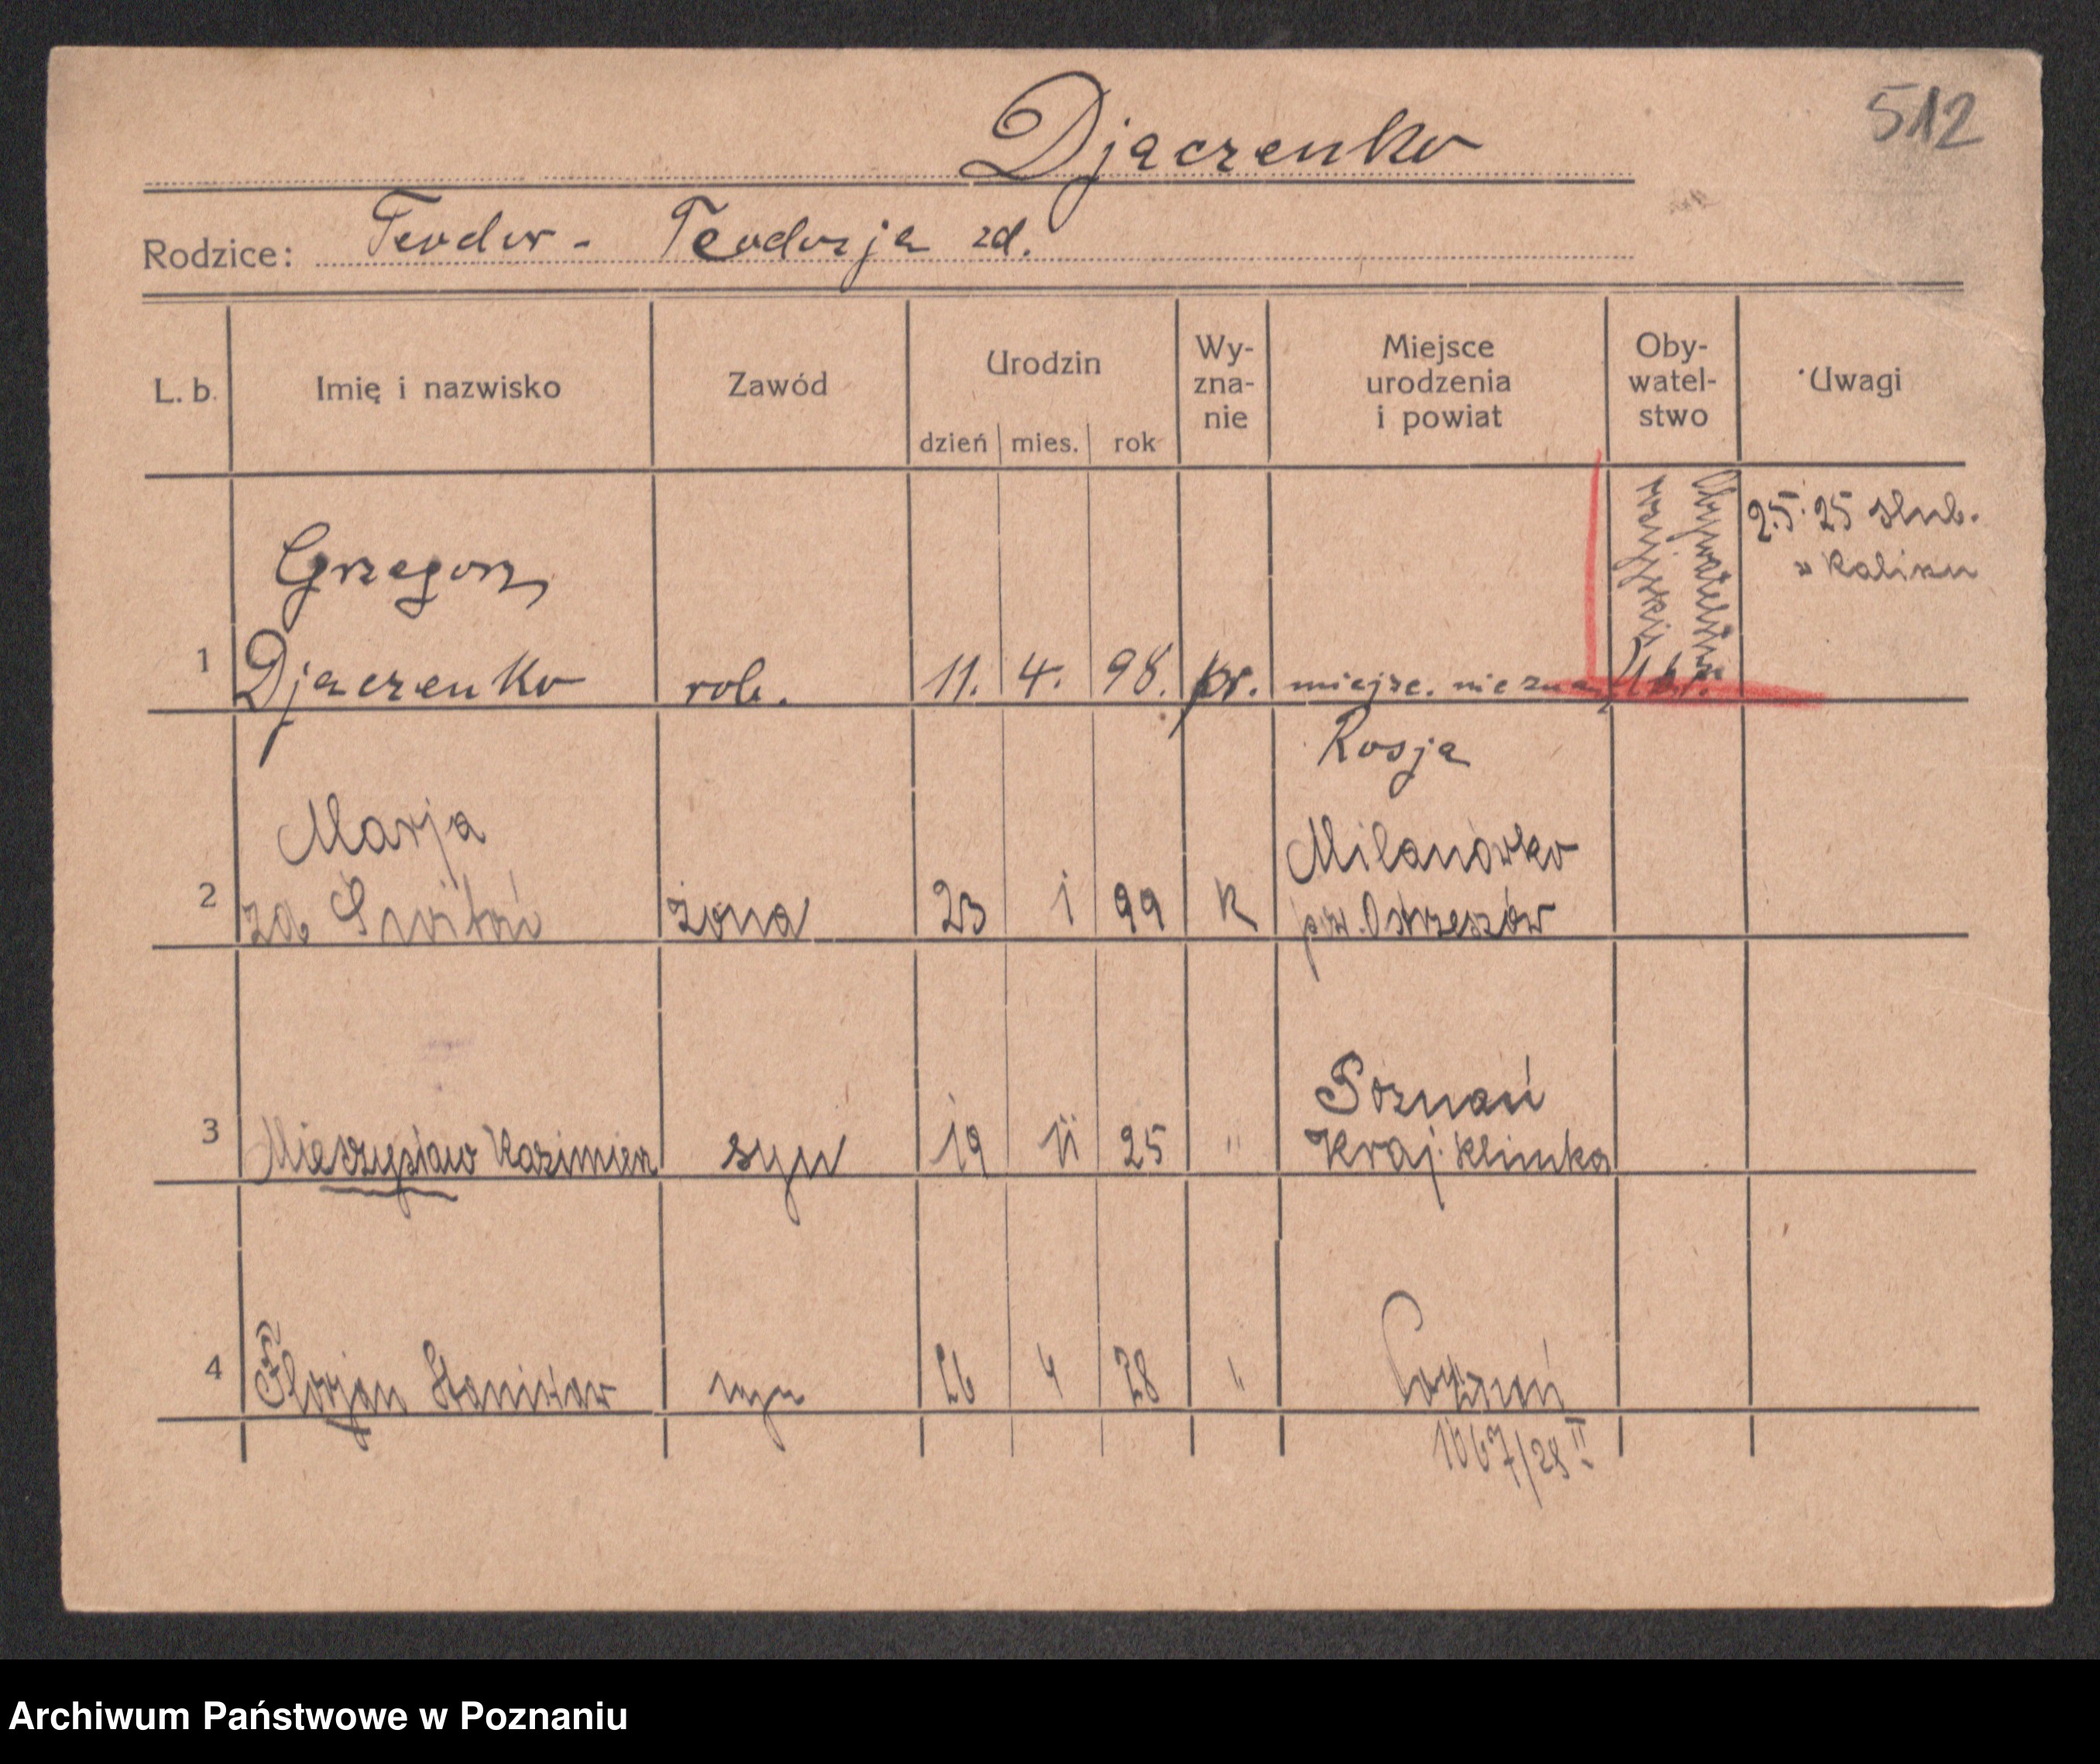 512
Djaczenko
Rodzice: Teodor - Teodozja zd.
L. b. Imię i nazwisko Zawód Urodzin Wy-zna-nie Miejsce urodzenia i powiat Oby-watel-stwo Uwagi
dzień mies. rok
25. 25 ślub.
w Kaliszu
Grzegorz
1 Djaczenko rob. 11. 4. 98. pr. miejsc. nieznany Ukr.
Rosja
Marja
Milanówko
2 zd. żona 23 i 99 K pow. Ostrzeszów
Poznań
3 Mieczysław Kazimierz syn 19 ii 25 " Kraj. Klinika
4 Florjan Stanisław syn 26 4 28 " Poznań
1067/28 II
Archiwum Państwowe w Poznaniu